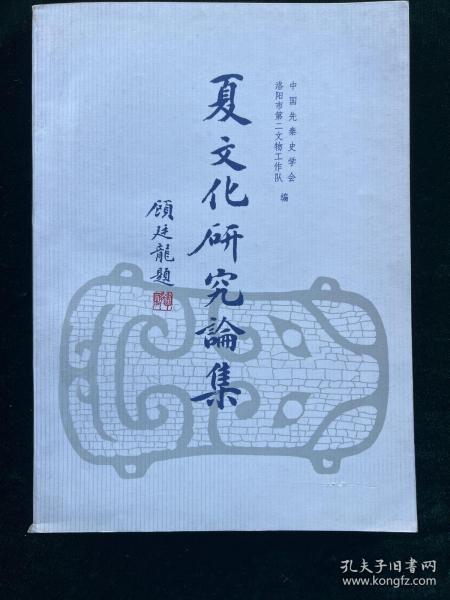 中国先秦史学会
洛阳市第二文物工作队
编
夏文化研究論集
顧廷龍題
孔夫子旧书网
www.kongfz.com